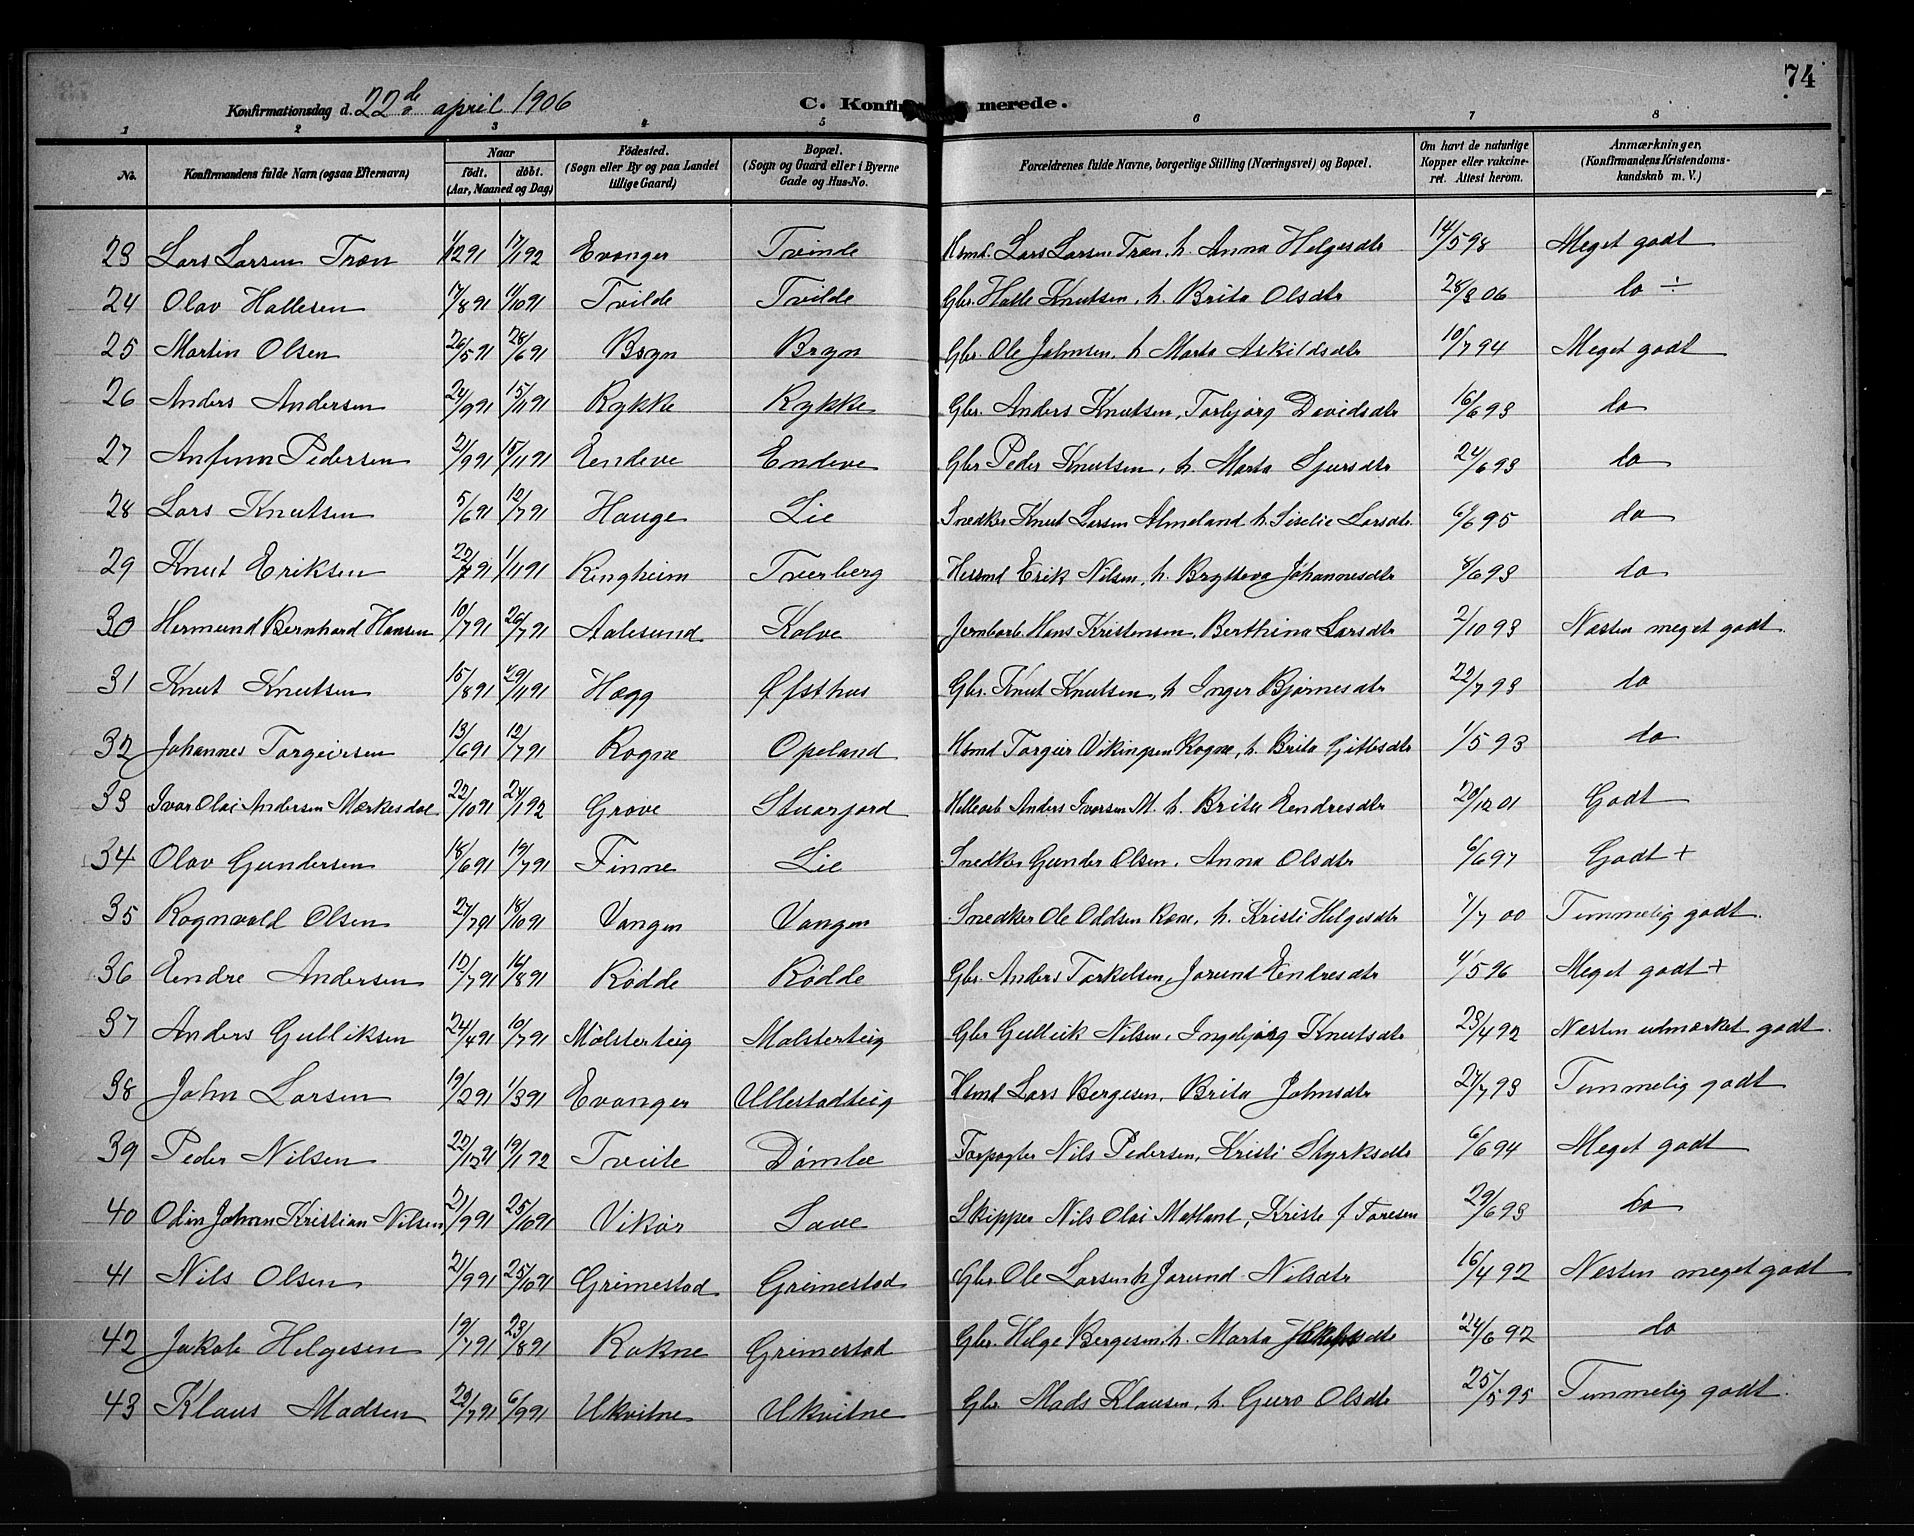 74
Konfirmationsdag d. 22de april 1906 C. Konfirmerede.
1 2 3 4 5 6 7 8
No. Konfirmandens fulde Navn (ogsaa Efternavn) Naar født. døbt. (Aar, Maaned og Dag) Fødested. (Sogn eller By og paa Landet tillige Gaard) Bopæl. (Sogn og Gaard eller i Byerne Gade og Hus-No. Forældrenes fulde Navne, borgerlige Stilling (Næringsvei) og Bopæl. Om havt de naturlige Kopper eller vakcineret. Attest herom. Anmærkninger, (Konfirmandens Kristendomskundskab m. V.)
23 Lars Larsen Træn 1/12 91 17/1 92 Evanger Tvinde Hsmd. Lars Larsen Træn, h. Anna Helgesdtr 14/5 98 Meget godt
24 Olav Hallesen 17/8 91 11/10 91 Tvilde Tvilde Gbr. Halle Knutsen, h. Brita Olsdtr 28/3 06 do ÷
25 Martin Olsen 26/5 91 28/6 91 Bryn Bryn Gbr. Ole Johnsen, h Marta Askildsdtr 10/7 94 Meget godt
26 Anders Andersen 24/9 91 15/11 91 Rykke Rykke Gbr. Anders Knutsen, Torbjørg Davidsdtr 16/6 93 do
27 Anfinn Pedersen 21/9 91 15/11 91 Eendeve Endeve Gbr Peder Knutsen, h. Marta Sjursdtr 24/6 93 do
28 Lars Knutsen 5/6 91 12/7 91 Hauge Lie Snedker Knut Larsen Almeland h. Siselie Larsdtr. 6/6 95 do
29 Knut Eriksen 22/7 91 1/11 91 Ringheim Tverberg Husmd Erik Nilsen, h. Brytteva Johannesdtr 8/6 93 do
30 Hermund Bernhard Hansen 10/7 91 26/7 91 Aalesund Kolve Jernbarb. Hans Kristensen, Berthina Larsdtr 2/10 93 Næsten meget godt.
31 Knut Knutsen 15/8 91 29/11 91 Hægg Øfsthus Gbr. Knut Knutsen, h Inger Bjørnesdtr 22/7 93 do
32 Johannes Torgeirsen 13/6 91 12/7 91 Rogne Opeland Hsmd Torgeir Vikingsen Rogne, h. Brita Gitlesdtr 1/5 93 do
33 Ivar Olai Andersen Mærkesdal 22/10 91 24/1 92 Grove Stuarjord Anders Iversen M. h. Brita Eendresdtr 20/12 01 Godt
34 Olav Gundersen 18/6 91 19/7 91 Finne Lie Snedker Gunder Olsen, Anna Olsdtr 6/6 97 Godt +
35 Rognvald Olsen 27/7 91 18/10 91 Vangen Vangen Snedker Ole Oddsen Rene, h. Kristi Helgesdtr 7/7 00 Temmelig godt.
36 Eendre Andersen 12/7 91 16/8 91 Rødde Rødde Gbr. Anders Torkelsen, Jorund Endresdtr 4/5 96 Meget godt +
37 Anders Gulliksen 24/4 91 10/7 91 Mølsterteig Mølsterteig Gbr Gullik Nilsen, Ingebjørg Knutsdtr 23/4 92 Næsten utmærket godt.
38 John Larsen 19/2 91 1/3 91 Evanger Ullestadteig Hsmd Lars Bergesen, Brita Johnsdtr 27/7 93 Temmelig godt
39 Peder Nilsen 22/12 91 19/1 92 Tveite Dømbe Forpagter Nils Pedersen, Kristi Styrksdtr 6/6 94 Meget godt
40 Odin Johan Kristian Nilsen 21/9 91 25/10 91 Vikør Save Skipper Nils Olai Matland, Kriste f Toresen 29/6 93 do
41 Nils Olsen 21/9 91 25/10 91 Grimestad Grimestad Gbr. Ole Larsen h Jorund Nilsdtr 16/4 92 Nesten meget godt
42 Jakob Helgesen 19/7 91 23/8 91 Rokne Grimestad Gbr. Helge Bergesen h. Marta Jakobsdtr 24/6 92 do
43 Klaus Madsen 22/7 91 6/9 91 Ukvitne Ukvitne Gbr Mads Klausen, h. Guro Olsdtr 25/5 95 Temmelig godt.